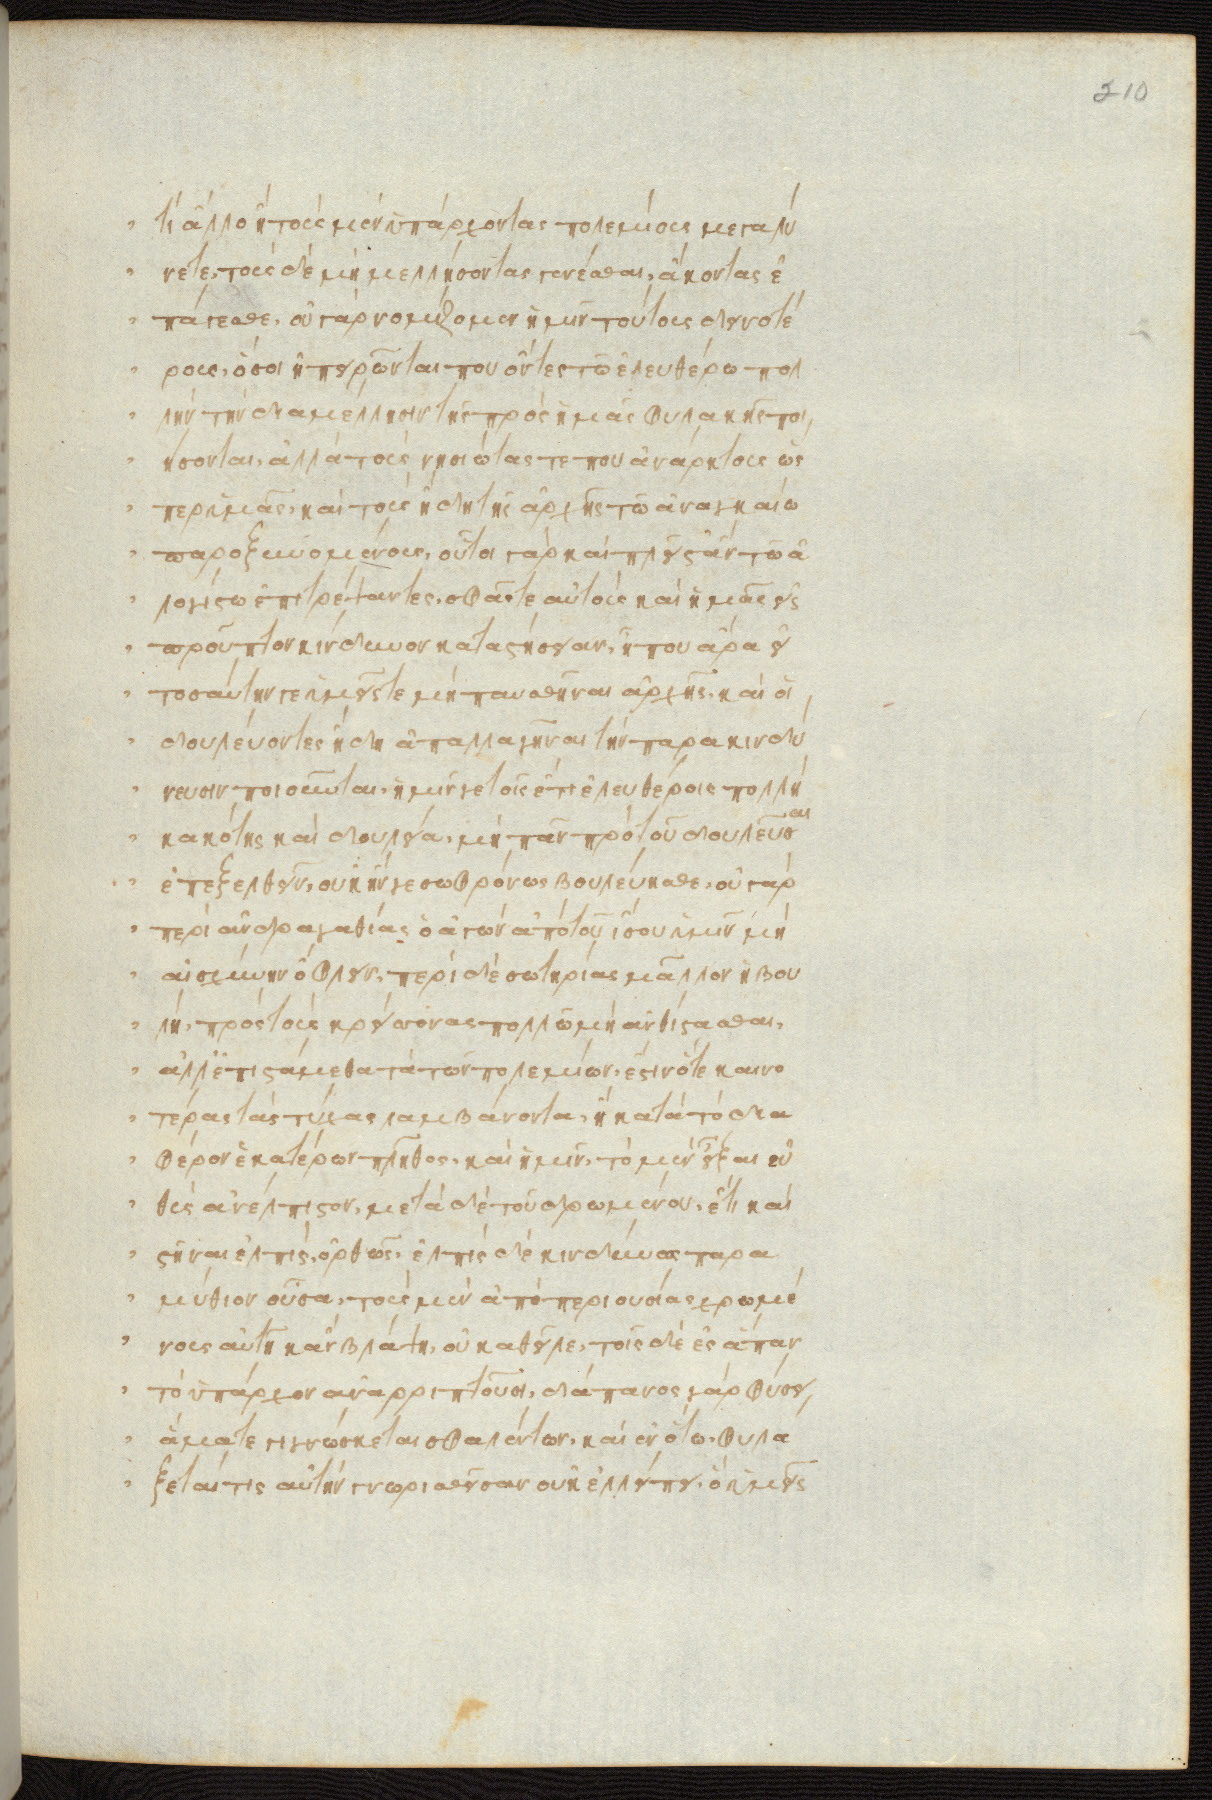 τί ἄλλο ἢ τοὺς μὲν ὑπάρχοντας πολεμίους μεγαλύ
νετε, τοὺς δὲ μὴ μελλήσοντας γενέσθαι, ἄκοντας ἐ
πάγεσθε, οὐ γὰρ νομίζομεν ἡμῖν τούτους δεινοτέ
ρους, ὅσοι ἠπειρῶνται που ὄντες τῶ ἐλευθέρω πολ
λὴν τὴν διαμέλλησιν τῆς πρὸς ἡμᾶς φυλακῆς ποι
ήσονται, ἀλλὰ τοὺς νησιώτας τέ που ἀνάρκτους ὥς
περ ὑμᾶς, καὶ τοὺς ἤδη τῆς ἀρχῆς τῶ ἀναγκαίω
παροξυνομένους, οὗτοι γὰρ καὶ πλεῖς ἂν τῶ ἀ
λογίστω ἐπιτρέψαντες, σφᾶς τε αὐτοὺς καὶ ἡμᾶς εἰς
προῦπτον κίνδυνον καταστήσειαν, ἤ που ἄρα εἰ
τοσαύτην γε ὑμεῖς τε μὴ παυσθῆναι ἀρχῆς, καὶ οἱ
δουλεύοντες ἤδη ἀπαλλαγῆναι τὴν παρακινδύ
νευσιν ποιοῦνται, ἡμῖν γε τοῖς ἔτι ἐλευθέροις πολλὴ
κακότης καὶ δουλεία, μὴ πᾶν πρὸ τοῦ δουλεῦσαι
ἐπεξελθεῖν, οὐκ ἤν γε σωφρόνως βουλεύησθε, οὐ γὰρ
περὶ ἀνδραγαθίας ὁ ἀγὼν ἀπὸ τοῦ ἴσου ὑμῖν μὴ
αἰσχύνην ὄφλειν, περὶ δὲ σωτηρίας μᾶλλον ἡ βου
λή, πρὸς τοὺς κρείσσονας πολλῶ μὴ ἀνθίστασθαι,
ἀλλ' ἐπιστάμεθα τὰ τῶν πολεμίων, ἔστιν ὅτε καινο
τέρας τὰς τύχας λαμβάνοντα, ἢ κατὰ τὸ δια
φέρον ἑκατέρων πλῆθος, καὶ ἡμῖν, τὸ μὲν εἶξαι εὐ
θὺς ἀνέλπιστον, μετὰ δὲ τοῦ δρωμένου, ἔτι καὶ
στῆναι ἐλπὶς, ὀρθῶς, ἐλπὶς δὲ κινδύνοις παρα
μύθιον οὖσα, τοὺς μὲν ἀπὸ περιουσίας χρωμέ
νους αὐτῆ κἂν βλάψη, οὐ καθεῖλε, τοῖς δὲ ἐς ἅπαν
τὸ ὑπάρχον ἀναρριπτοῦσι, δάπανος γὰρ φύσει,
ἅμα τε γιγνώσκεται σφαλέντων, καὶ ἐν ὅτω, φυλά
ξεταί τις αὐτὴν γνωρισθεῖσαν οὐκ ἐλλείπει, ὃ ὑμεῖς
210